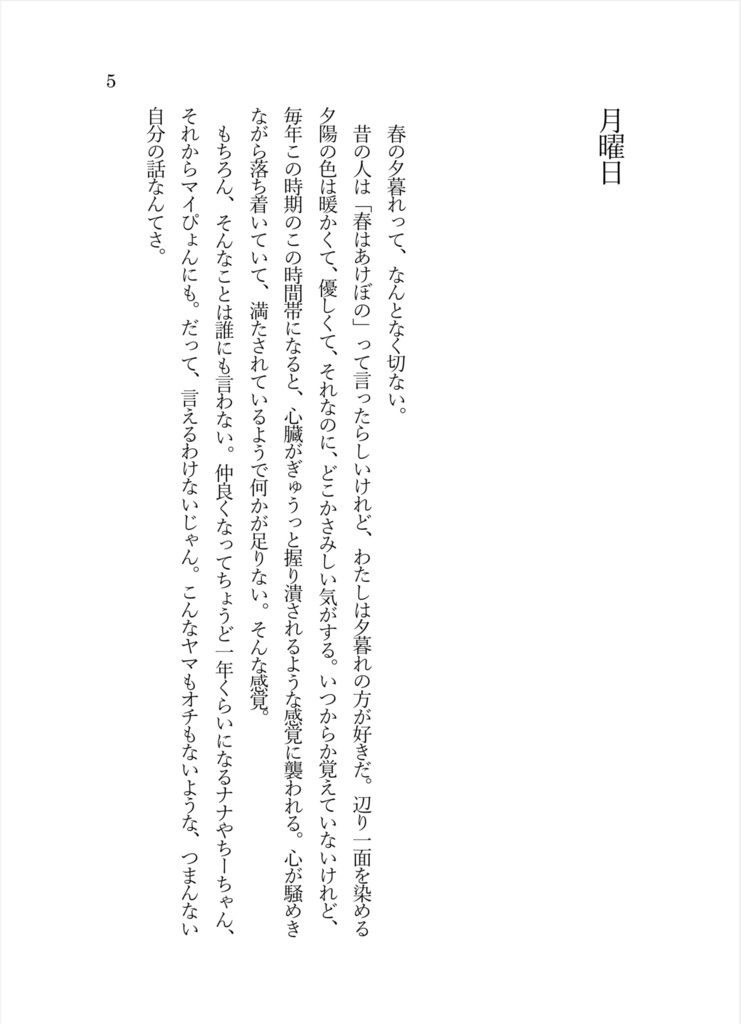 月曜日
春の夕暮れって、なんとなく切ない。
昔の人は「春はあけぼの」って言ったらしいけれど、わたしは夕暮れの方が好きだ。辺り一面を染める
夕陽の色は暖かくて、優しくて、それなのに、どこかさみしい気がする。いつからか覚えていないけれど、
毎年この時期のこの時間帯になると、心臓がぎゅうっと握り潰されるような感覚に襲われる。心が騒めき
ながら落ち着いていて、満たされているようで何かが足りない。そんな感覚。
もちろん、そんなことは誰にも言わない。仲良くなってちょうど一年くらいになるナナやちーちゃん、
それからマイぴょんにも。だって、言えるわけないじゃん。こんなヤマもオチもないような、つまんない
自分の話なんてさ。
5